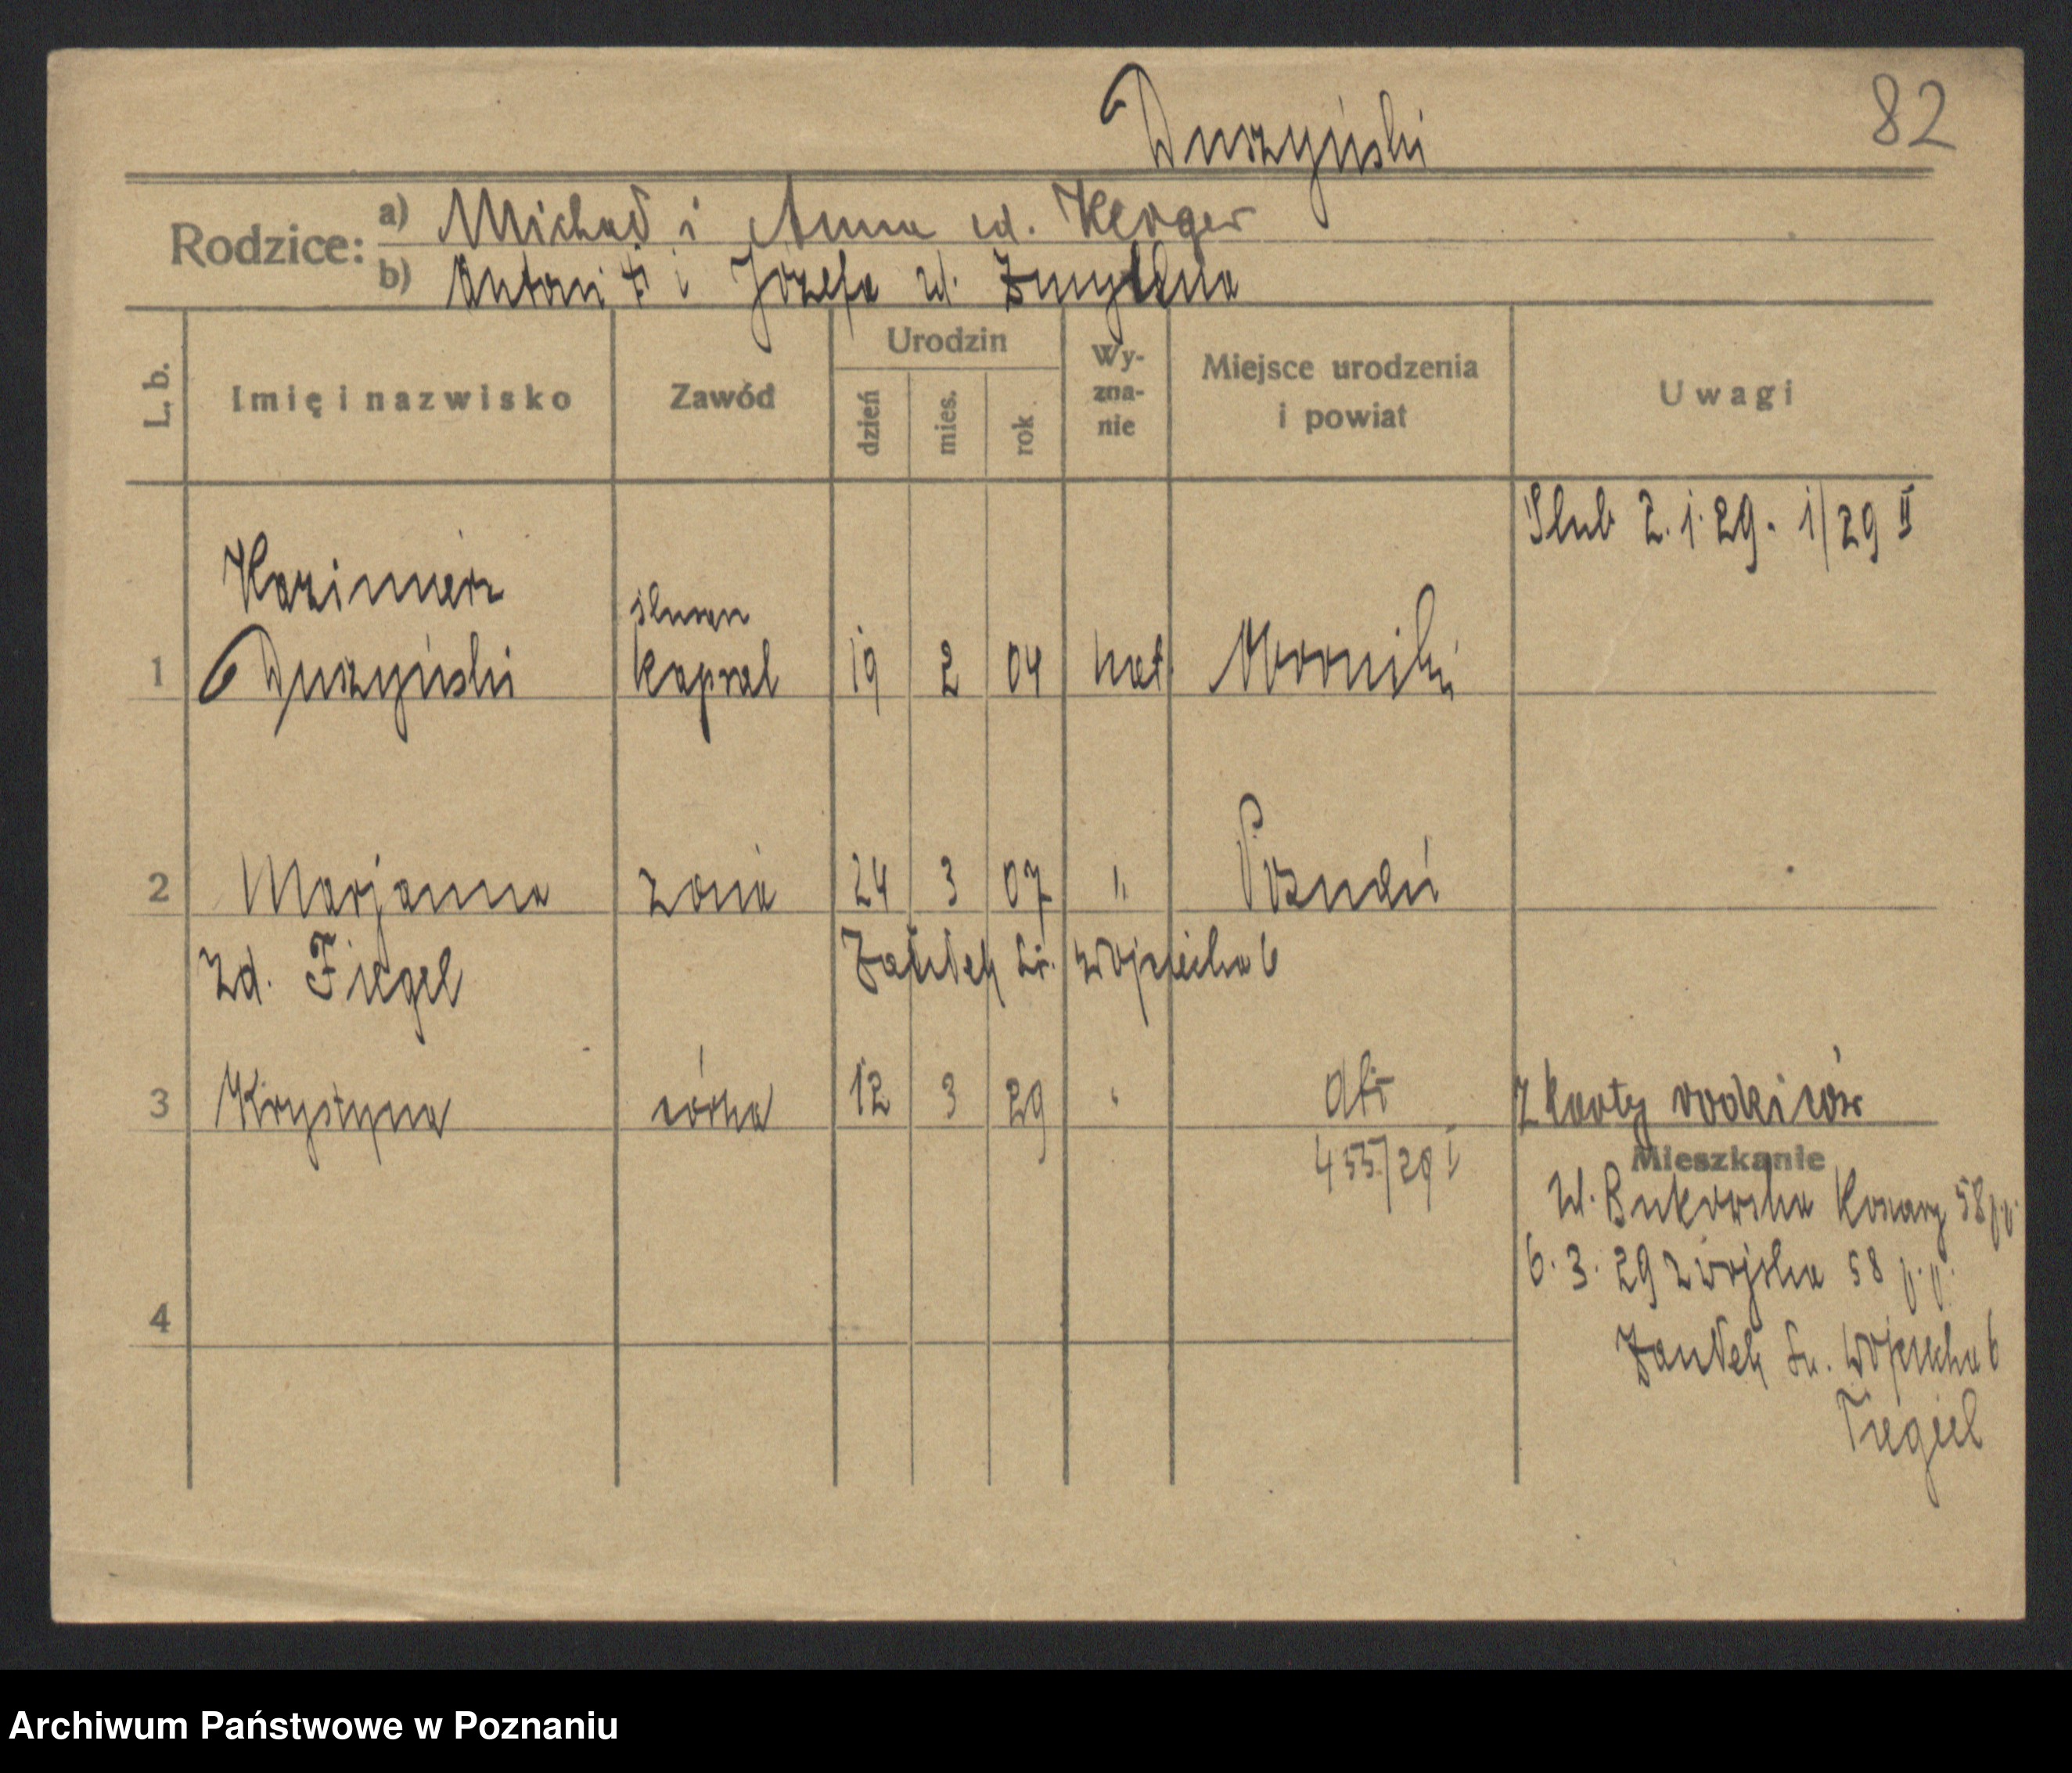 82
Duszyński
Rodzice:
a) Michał i Anna zd. Kroger
b) Antoni i Józefa zd.
L. b.
Imię i nazwisko
Zawód
Urodzin
dzień
mies.
rok
Wy-
zna-
nie
Miejsce urodzenia
i powiat
Uwagi
Slub 2.1.29. 1/29 II
Kazimierz
ślusarz
1 Duszyński kapral 19 2 04 kat. Oborniki
2 Marjanna żona 24 3 07 " Poznań
zd. Fiegel Zawady św. Wojciecha 6
3 Krystyna córka 12 3 29 " akt z karty rodziców
455/29 I
Mieszkanie
ul. Bukowska Koszary 58 p.p.
6. 3. 29 z wojska 58 p.p.
4
św. Wojciecha 6
Fiegiel
Archiwum Państwowe w Poznaniu